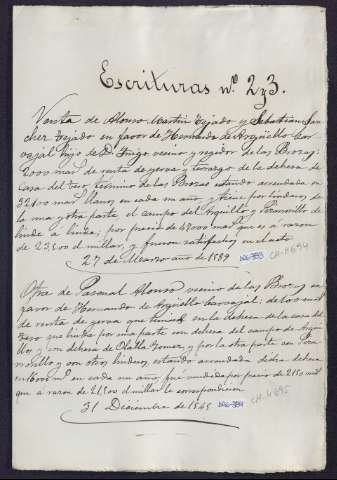 Escrituras nº 2 y 3.
Venta de Alonso Martin Tejado y Sebastian San-
chez Tejado en favor de Hernando de Argüello Car-
vajal hijo de D. Iñigo vecino y regidor de las Brozas;
2000 mar de renta de yerva y de la dehesa de
Casa del término de las Brozas estando arrendada en
mar. llanos en cada un año, y tiene por linderos de
la una y otra parte el campo del Arguillo y Paramillo de
linde a linde; por precio de 47000 mar. que es a razon
de 23,500 el millar, y fueron satisfechos en el acto
27 de Marzo año de 1539
Otra de Pascual Alonso vecino de las Brozas en
favor de Hernando de Argüello Carvajal; de 100 m
de renta de yerva que tenia en la dehesa de la casa del
que linda por una parte con dehesa del campo de
y con dehesa de Olalla Gomez, y por la otra parte con
y con otros linderos, estando arrendada dicha dehesa
en cada un año, fué vendida por precio de 2150 m
que a razon de 21,500 el millar le correspondieron
31 Diciembre de 1545